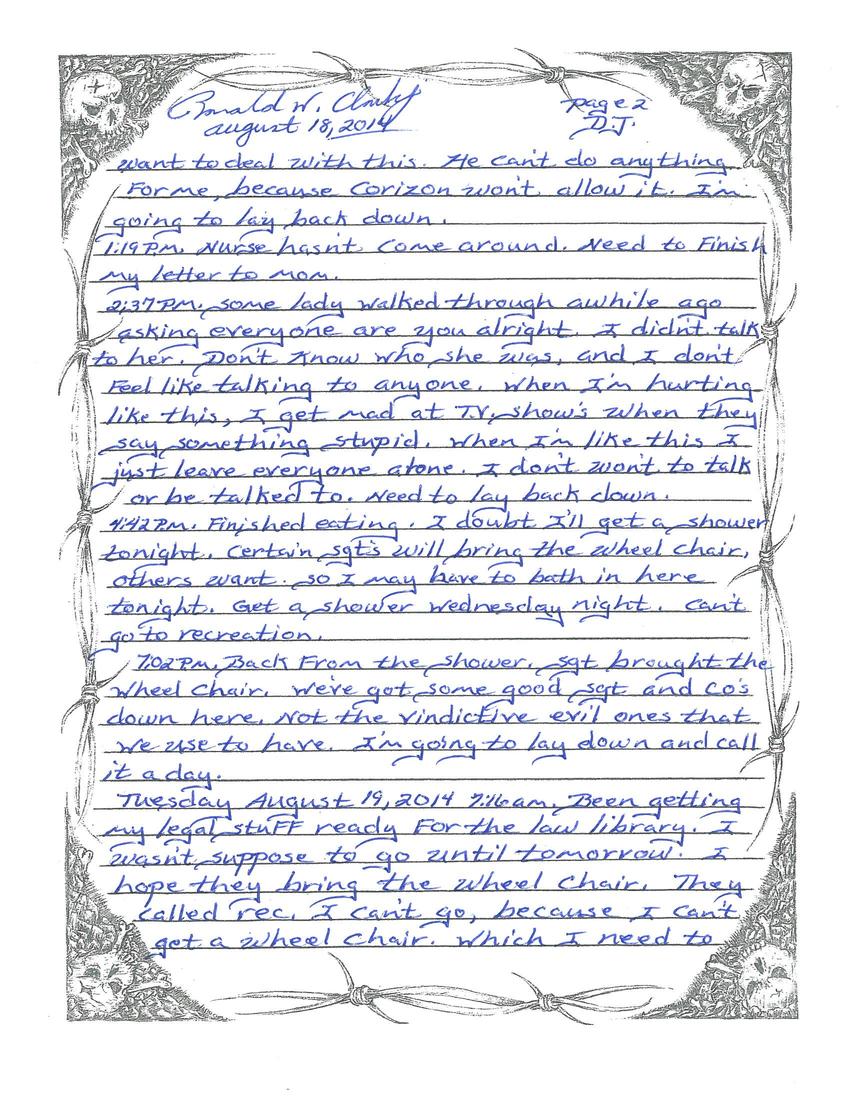 Ronald W. Clark Jr
august 18, 2014
page 2
D.J.
want to deal with this. He can't do anything
For me, because Corizon won't allow it. I'm
going to lay back down.
1:19 P.M. Nurse hasn't come around. Need to Finish
my letter to mom.
2:37 P.M. some lady walked through awhile ago
asking everyone are you alright. I didn't talk
to her. Don't know who she was, and I don't
Feel like talking to anyone. When I'm hurting
like this, I get mad at T.V. show's when they
say something stupid. When I'm like this I
just leave everyone alone. I don't won't to talk
or be talked to. Need to lay back down.
4:42 P.M. Finished eating. I doubt I'll get a shower
tonight. Certain sgt's will bring the wheel chair,
others want. so I may have to bath in here
tonight. Get a shower Wednesday night. Can't
go to recreation.
7:02 P.M. Back From the shower. sgt brought the
wheel chair. We've got some good sgt and co's
down here. Not the vindictive evil ones that
we use to have. I'm going to lay down and call
it a day.
Tuesday August 19, 2014 7:16 am. Been getting
my legal stuFF ready For the law library. I
wasn't suppose to go until tomorrow. I
hope they bring the wheel chair. They
called rec. I can't go, because I can't
get a wheel chair. Which I need to